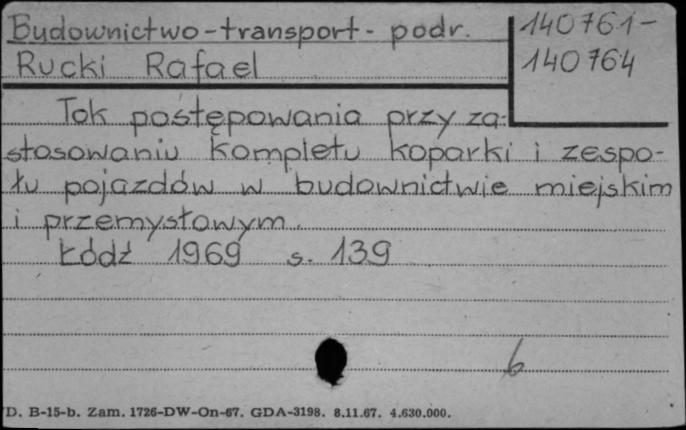 Budownictwo-transport- podr.
140761-
140764
Rucki Rafael
Tok postępowania przy za-
stosowaniu kompletu koparki i zespo-
łu pojazdów w budownictwie miejskim
i przemysłowym.
Łódź 1969 s. 139
b
D. B-15-b. Zam. 1726-DW-On-67. GDA-3198. 8.11.67. 4.630.000.